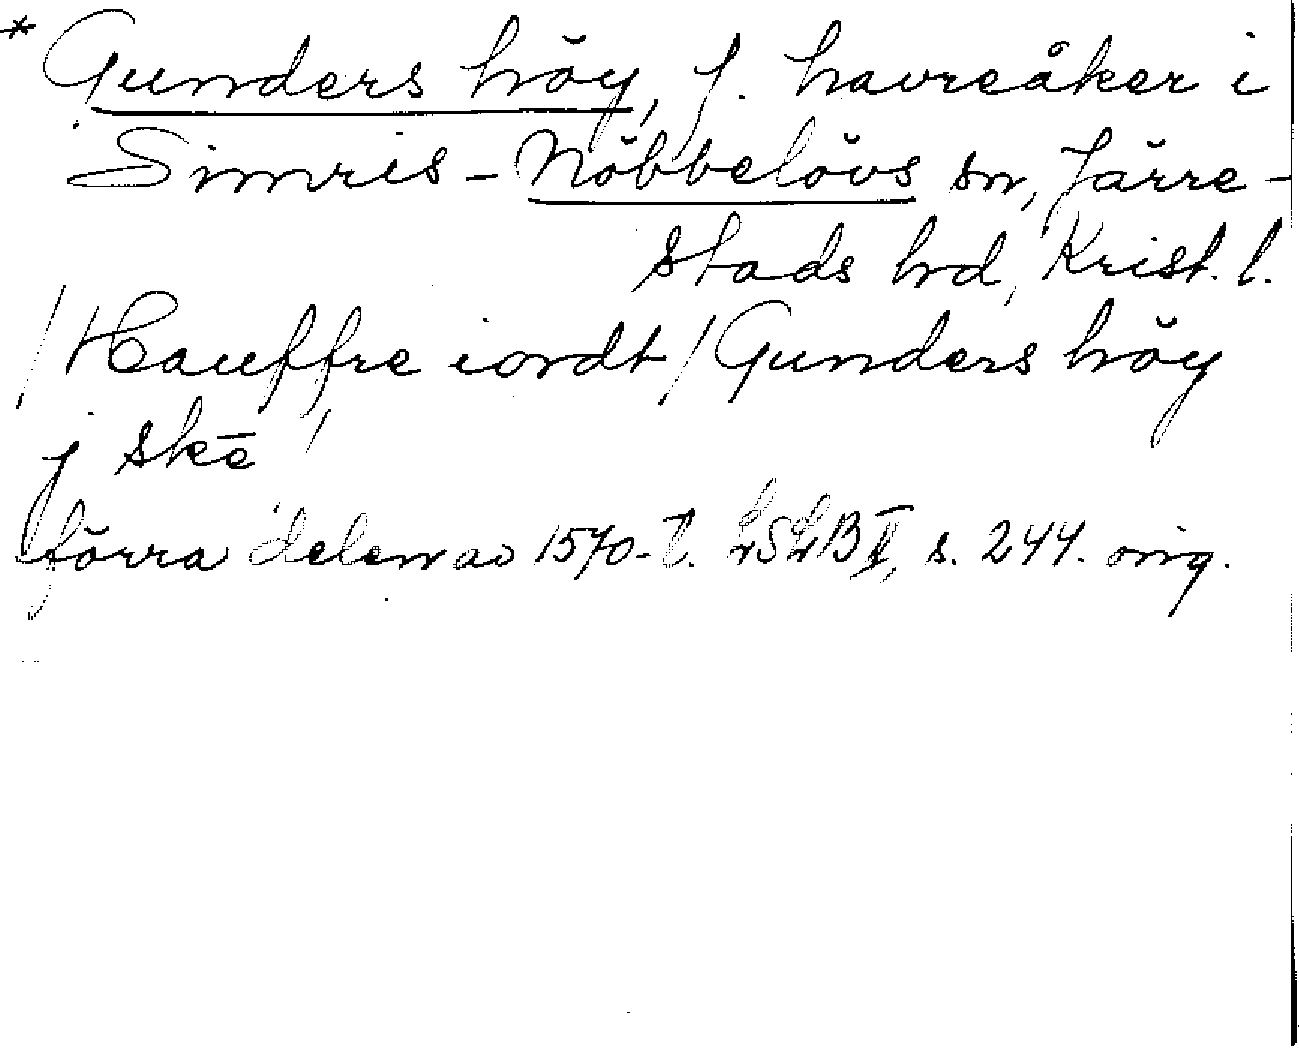 * Gunders höy, f. havreåker i
Simris-Nöbbelövs sn, Järre-
stads hrd, Krist. l.
/Hauffre iordt/ Gunders höy
j skē
förra delen av 1570-t. LSLB II, s. 244. orig.